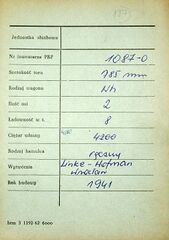 Jednostka służbowa
Nr inwentarza PKP 1087-0
Szerokość toru 785 mm
Rodzaj wagonu Nh
Ilość osi 2
Ładowność w t. 8
Ciężar własny 4200
Rodzaj hamulca ręczny
Wytwórnia Linke-Hofman Wrocław
Rok budowy 1941